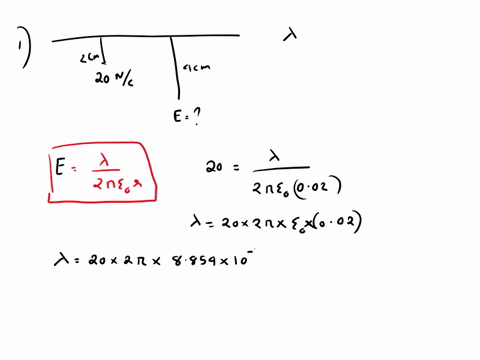 1) λ
2cm
20 N/C
4cm
E = ?
E = λ / 2πε₀r
20 = λ / 2πε₀(0.02)
λ = 20 × 2π × ε₀ × (0.02)
λ = 20 × 2π × 8.854 × 10⁻